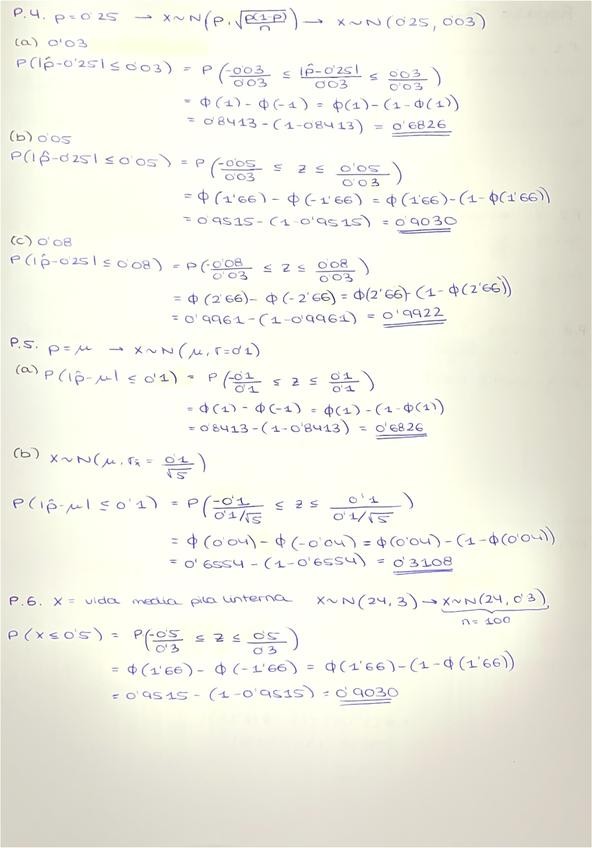 P.4. p=0'25 → X~N(p, √(p(1-p)/n)) → X~N(0'25, 0'03)
(a) 0'03
P(|p̂-0'25|≤0'03) = P(-0'03/0'03 ≤ |p̂-0'25|/0'03 ≤ 0'03/0'03)
= Φ(1) - Φ(-1) = Φ(1)-(1-Φ(1))
= 0'8413-(1-0'8413) = 0'6826
(b) 0'05
P(|p̂-0'25|≤0'05) = P(-0'05/0'03 ≤ z ≤ 0'05/0'03)
= Φ(1'66) - Φ(-1'66) = Φ(1'66)-(1-Φ(1'66))
= 0'9515-(1-0'9515) = 0'9030
(c) 0'08
P(|p̂-0'25|≤0'08) = P(-0'08/0'03 ≤ z ≤ 0'08/0'03)
= Φ(2'66)- Φ(-2'66) = Φ(2'66)-(1-Φ(2'66))
= 0'9961-(1-0'9961) = 0'9922
P.5. p=μ → X~N(μ, σ=0'1)
(a) P(|p̂-μ| ≤ 0'1) = P(-0'1/0'1 ≤ z ≤ 0'1/0'1)
= Φ(1) - Φ(-1) = Φ(1)-(1-Φ(1))
= 0'8413-(1-0'8413) = 0'6826
(b) X~N(μ, σx̄ = 0'1/√5)
P(|p̂-μ| ≤ 0'1) = P(-0'1/0'1/√5 ≤ z ≤ 0'1/0'1/√5)
= Φ(0'04) - Φ(-0'04) = Φ(0'04)-(1-Φ(0'04))
= 0'6554-(1-0'6554) = 0'3108
P.6. X = vida media pila linterna X~N(24, 3) → X~N(24, 0'3)
n=100
P(X≤0'5) = P(-0'5/0'3 ≤ z ≤ 0'5/0'3)
= Φ(1'66) - Φ(-1'66) = Φ(1'66)-(1-Φ(1'66))
= 0'9515-(1-0'9515) = 0'9030